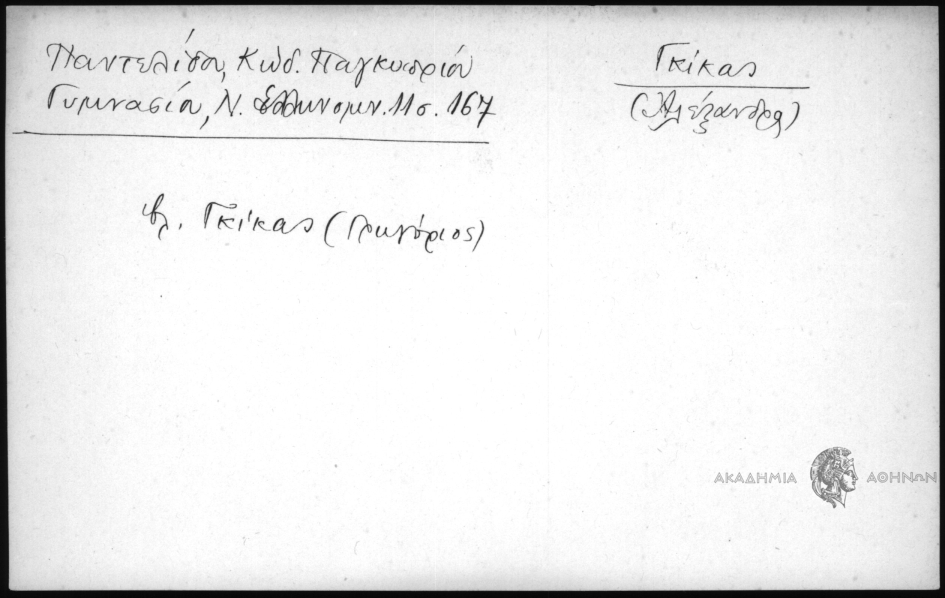 Παντελίδου, Κώδ. Παγκυπρίου
Γυμνασίου, Ν. Ἑλληνομν. 11 σ. 167
Γκίκας
(Ἀλέξανδρος)
βλ. Γκίκας (Γρηγόριος)
ΑΚΑΔΗΜΙΑ ΑΘΗΝΩΝ